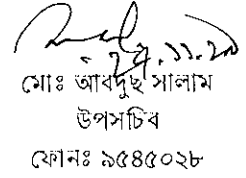 ২৭.১১.২৯
মোঃ আবদুছ সালাম
উপসচিব
ফোনঃ ৯৫৪৫০২৮